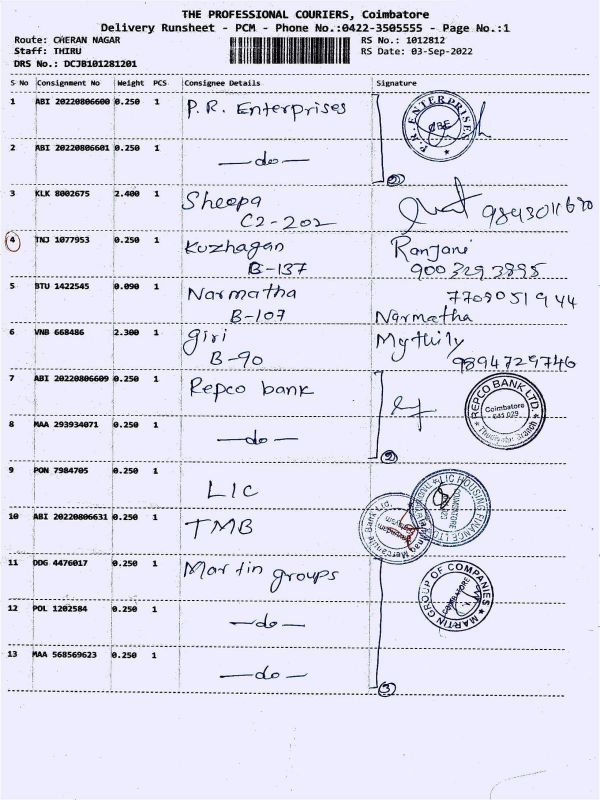 THE PROFESSIONAL COURIERS, Coimbatore
Delivery Runsheet - PCM - Phone No.:0422-3505555 - Page No.:1
Route: CHERAN NAGAR
RS No.: 1012812
Staff: THIRU
RS Date: 03-Sep-2022
DRS No.: DCJB101281201
S No Consignment No Weight PCS Consignee Details Signature
1 ABI 20220806600 0.250 1 P.R. Enterprises
P.R. ENTERPRISES
CBE
2 ABI 20220806601 0.250 1 —do—
②
3 KLK 8002675 2.400 1 Sheepa
C2-202
4 TNJ 1077953 0.250 1 Kuzhagan Ranjani
B-137 9003293895
5 BTU 1422545 0.090 1 Narmatha 7709051944
B-107 Narmatha
6 VNB 668486 2.300 1 giri Mythily
B-90 9894729746
7 ABI 20220806609 0.250 1 Repco bank
REPCO BANK LTD.
Coimbatore
8 MAA 293934071 0.250 1 —do—
②
9 PON 7984705 0.250 1 LIC
LIC HOUSING FINANCE LTD
COIMBATORE
10 ABI 20220806631 0.250 1 TMB
Mercantile Bank Ltd.
11 DDG 4476017 0.250 1 Martin groups
MARTIN GROUP OF COMPANIES
COIMBATORE
12 POL 1202584 0.250 1 —do—
13 MAA 568569623 0.250 1 —do—
③